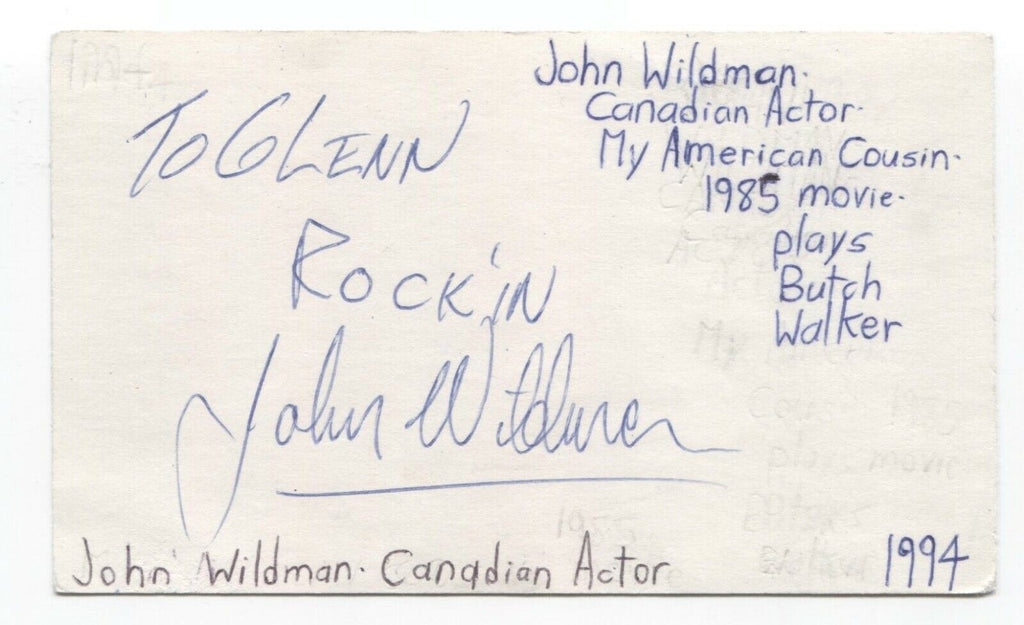 To GLENN
ROCK'IN
John Wildman
John Wildman.
Canadian Actor.
My American Cousin.
1985 movie.
plays
Butch
Walker
John Wildman. Canadian Actor
1994